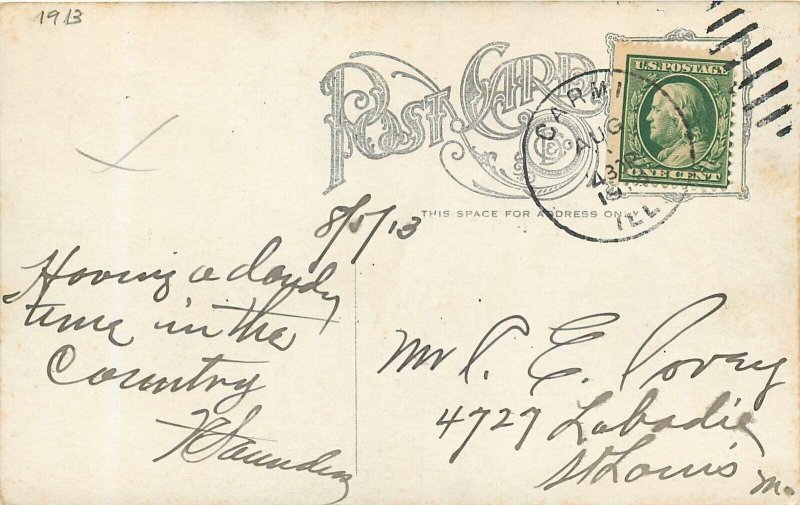 1913
POST CARD
U.S. POSTAGE
ONE CENT
CARMI
AUG
430P
ILL
THIS SPACE FOR ADDRESS ONLY
8/5/13
Having a dandy
time in the
Country
Saunders
Mr C. E. Ivory
4727 Labadie
St Louis
Mo.